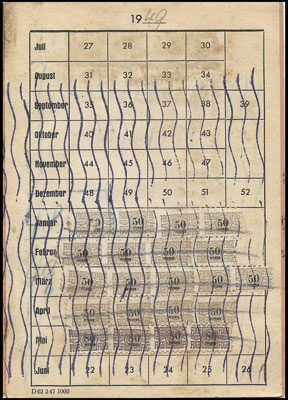 1949
Juli 27 28 29 30
August 31 32 33 34
September 35 36 37 38 39
Oktober 40 41 42 43
November 44 45 46 47
Dezember 48 49 50 51 52
Januar 50 50 50 50
Februar 50 50 50 50
März 50 50 50 50 50
April 50 50 50 50
Mai
Juni 22 23 24 25 26
D 02 2 47 1000